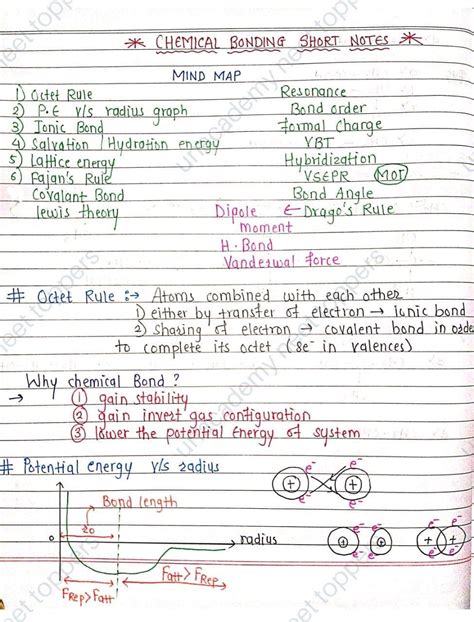 * CHEMICAL BONDING SHORT NOTES *
MIND MAP
1) Octet Rule
2) P.E v/s radius graph
3) Ionic Bond
4) Salvation / Hydration energy
5) Lattice energy
6) Fajan's Rule
Covalant Bond
lewis theory
Resonance
Bond order
formal Charge
VBT
Hybridization
VSEPR MOT
Bond Angle
Dipole ← Drago's Rule
moment
H-Bond
Vanderwal force
# Octet Rule :→ Atoms combined with each other
1) either by transfer of electron → Ionic bond
2) sharing of electron → covalent bond in orde
to complete its octet (8e⁻ in valences)
Why chemical Bond?
→ ① gain stability
② gain invert gas configuration
③ lower the potential Energy of system
# Potential energy v/s radius
Bond length
r0
0
radius
FRep>Fatt
Fatt>FRep
e⁻ e⁻
+ +
e⁻ e⁻
e⁻ e⁻ e⁻
+ + + +
e⁻ e⁻ e⁻
neet toppers
unacademy neet toppers
neet toppers
unacademy neet toppers
neet toppers
neet toppers